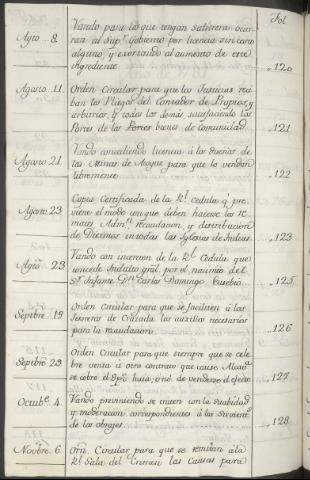 Fol
Agto 8.
Vando para los que tengan salitreras ocur-
ran al Supr. Govierno por licencia sin costo
alguno, y exortando al aumento de este
ingrediente
120
Agosto 11.
Orden Circular para que las Justicias reci-
ban los Pliegos del Contador de Propios, y
arbitrios, y todos los demás satisfaciendo los
Portes de los Portes bienes de Comunidad
121
Agosto 21.
Vando concediendo licencia á los Dueños de
las Minas de Azogue para que lo vendan
libremente
122
Agosto 23
Copia Certificada de la Rl. Cedula q. pre-
viene el modo con que deben hacerse los Re-
mates Admon. recaudacion, y distribucion
de Diezmos en todas las Iglesias de Indias
123
Agto 23
Vando con insercion de la Rl. Cedula que
concede Indulto gral. por el nacimto. del
Sr. Infante Dn. Carlos Domingo Eusebio
125
Sepbre. 19
Orden Circular para que se faciliten á los
Tesoreros de Cruzada los auxilios necesarios
para la recaudacion
126
Sepbre. 29
Orden Circular para que siempre que se cele-
bre venta ú otro contrato que cause Alcava
se cobre el Rl. haia, ó no de venderse el efecto
127
Octube. 4.
Vando previniendo se traten con la suabidad
y moderacion correspondientes á los sirvientes
de los obrages
128
Novbre. 6.
Orn. Circular para que se remitan á la
Rl. Sala del Crimen las Causas para